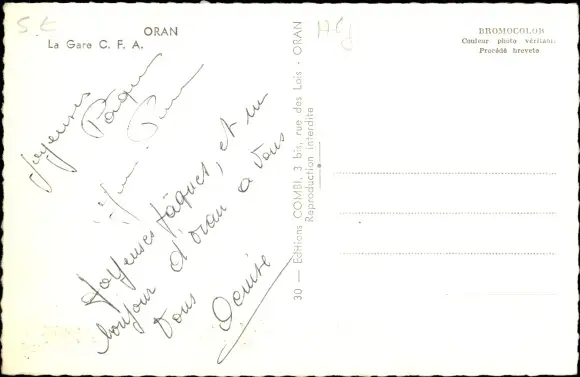 5 €
Alg
ORAN
La Gare C. F. A.
BROMOCOLOR
Couleur photo véritable
Procédé breveté
Joyeuses
Pâques
Joyeuses Pâques, et un
bonjour d'oran a vous
Tous
Denise
30 — Editions COMBI, 3 bis, rue des Lois - ORAN
Reproduction interdite